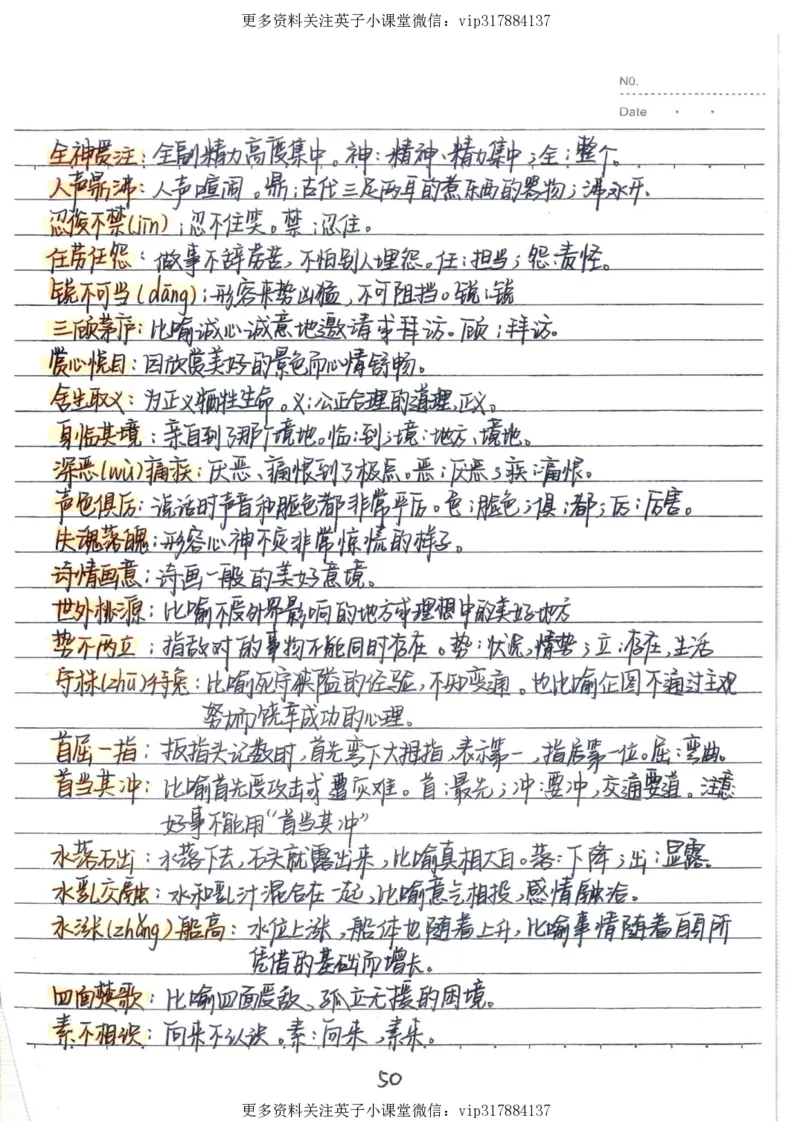 更多资料关注英子小课堂微信：vip317884137
NO.
Date
全神贯注：全副精力高度集中。神：精神、精力集中；全：整个。
人声鼎沸：人声喧闹。鼎：古代三足两耳的煮东西的器物；沸水开.
忍俊不禁(jīn)：忍不住笑。禁：忍住。
任劳任怨：做事不辞劳苦，不怕别人埋怨。任：担当；怨：责怪。
锐不可当(dāng)：形容来势凶猛，不可阻挡。锐：锐
三顾茅庐：比喻诚心诚意地邀请或拜访。顾：拜访。
赏心悦目：因欣赏美好的景色而心情舒畅。
舍生取义：为正义牺牲生命。义：公正合理的道理，正义。
身临其境：亲自到了那个境地。临：到；境：地方、境地。
深恶(wù)痛疾：厌恶、痛恨到了极点。恶：厌恶；疾：痛恨。
声色俱厉：说话时声音和脸色都非常严厉。色：脸色；俱：都；厉：厉害。
失魂落魄：形容心神不定非常惊慌的样子。
诗情画意：诗画一般的美好意境。
世外桃源：比喻不受外界影响的地方或理想中的美好地方
势不两立：指敌对的事物不能同时存在。势：状况，情势；立：存在，生活
守株(zhū)待兔：比喻死守狭隘的经验，不知变通。也比喻企图不通过主观
努力而侥幸成功的心理。
首屈一指：扳指头记数时，首先弯下大拇指，表示第一，指居第一位。屈：弯曲。
首当其冲：比喻首先受攻击或遭灾难。首：最先；冲：要冲，交通要道。注意
好事不能用“首当其冲”
水落石出：水落下去，石头就露出来，比喻真相大白。落：下降；出：显露。
水乳交融：水和乳汁混合在一起，比喻意气相投，感情融洽。
水涨(zhǎng)船高：水位上涨，船体也随着上升，比喻事情随着自身所
凭借的基础而增长。
四面楚歌：比喻四面受敌、孤立无援的困境。
素不相识：向来不认识。素：向来，素来。
50
更多资料关注英子小课堂微信：vip317884137